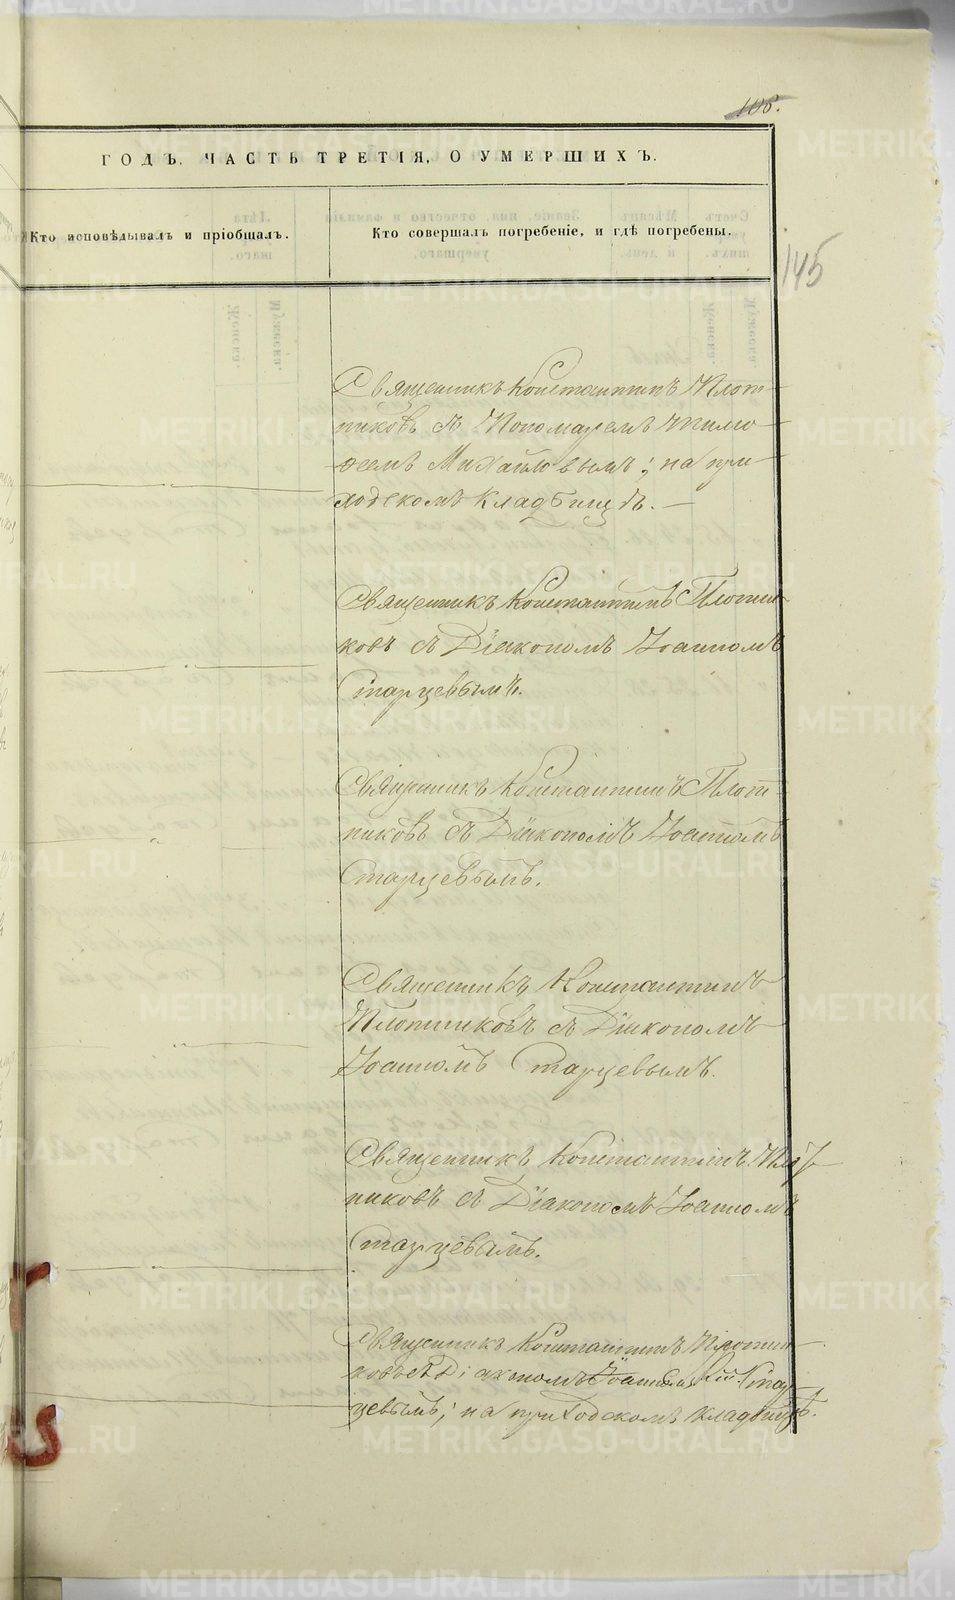 105.
ГОДЪ. ЧАСТЬ ТРЕТІЯ, О УМЕРШИХЪ.
Кто исповѣдывалъ и пріобщалъ.
Кто совершалъ погребеніе, и гдѣ погребены.
145
Священникъ Константинъ Плот-
никовъ съ Пономаремъ Тимо-
феемъ Михайловымъ; на при-
ходскомъ кладбищѣ. —
Священникъ Константинъ Плотни-
ковъ съ Діакономъ Іоанномъ
Старцевымъ.
Священникъ Константинъ Плот-
никовъ съ Діакономъ Іоанномъ
Старцевымъ.
Священникъ Константинъ
Плотниковъ съ Діакономъ
Іоанномъ Старцевымъ.
Священникъ Константинъ Плот-
никовъ съ Діакономъ Іоанномъ
Старцевымъ.
Священникъ Константинъ Плотни-
ковъ съ Діакономъ Іоанномъ Стар-
цевымъ; на приходскомъ кладбищѣ.
METRIKI.GASO-URAL.RU